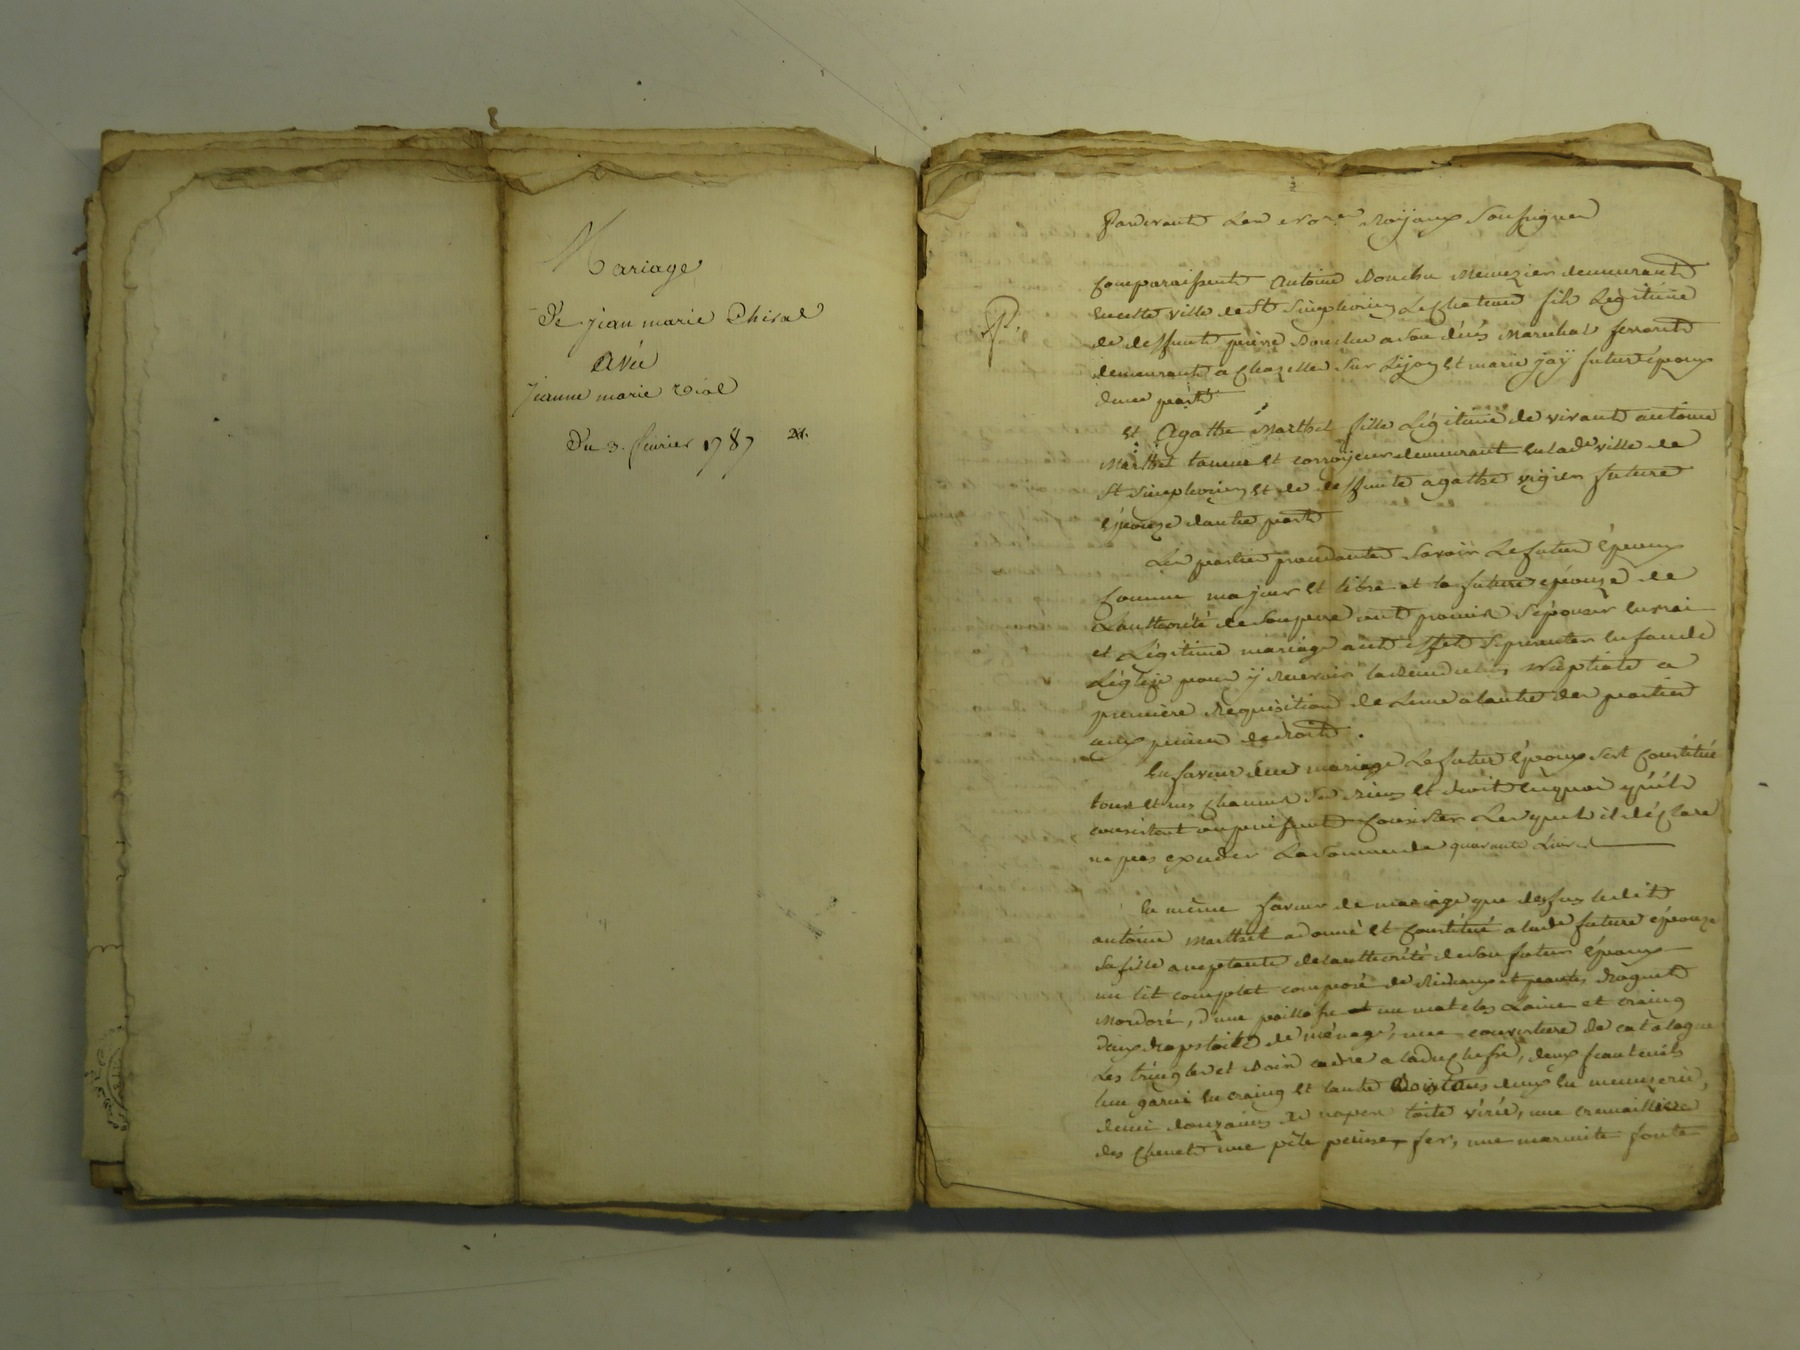 Mariage
De jean marie Thival
Avec
jeanne marie vial
Du 3. fevrier 1787
Pardevant Les no.res Royaux Soussignés
Comparaissent Antoine Menuzier demeurant
en cette ville de St Simphorien Le Chateau fils Légitime
de deffunt pierre a son décès Marechal ferrant
demeurant a Chazelles Sur Lijon et marie jaÿ futur époux
dune part
et Agathe Marthet fille Légitime de vivant antoine
Marthet tanneur et corroyeur demeurant en lad. ville de
St Simphorien et de deffunte agathe vigier future
épouze dautre part
Les parties procedantes Savoir Le futur Epoux
comme majeur et libre et la future epouze de
Lauthorité de Son pere ont promis Sépouzer en vrai
et Légitime mariage a cet effet Se presenter en face de
Léglize pour ÿ recevoir la Benediction Nuptiale a
premiere Requisition de Lune a lautre des parties
aux peines de droit.
En faveur du mariage Le futur Epoux Sest Constitué
tous et uns chacuns Ses Biens et droit en quoi quils
consistent ou puissent Consister Lesquels il déclare
ne pas exceder La Somme de quarante Livres
En même faveur de mariage que dessus Ledit
antoine Marthet a donné et Constitué a lade future épouze
Sa fille acceptante de lauthorité de Son futur Epoux
un lit complet composé de Rideaux et pentes
Mordoré, d'une paillasse et un matelas Laine et craing
deux draps toile de ménage, une couverture de catalogne
Les tringles et Bois cadre a la duchesse, deux fauteuils
lun garni en craing et lautre en menuzerie,
demi douzaine de napes toile virée, une cremaillere
des Chenets une pèle peine fer, une marmite fonte